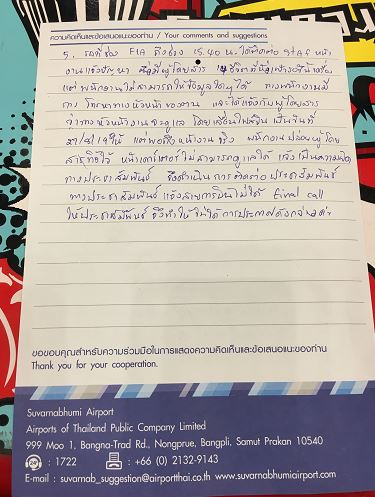 ความคิดเห็นและข้อเสนอแนะของท่าน / Your comments and suggestions
5. รถที่ช่อง F1A ถึงช่วง 15.40 น. ได้ติดต่อ staff หน้า
งานแจ้งปัญหา
แต่พนักงานไม่สามารถให้ข้อมูลใดๆได้ ทางพนักงานมี
การ โทรหาทางหัวหน้าของตน และได้แจ้งกับผู้โดยสาร
ว่าทางหัวหน้างานจะดูแล โดยเลื่อนไฟล์บินเป็นวันที่
ให้ แต่พอถึงหน้างานจริง พนักงาน
หน้าเคาน์เตอร์ไม่สามารถดูแลได้ แจ้งเป็นความผิด
ทางประชาสัมพันธ์ จึงดำเนินการติดต่อประชาสัมพันธ์
ทางประชาสัมพันธ์ แจ้งสายการบินไม่ได้ final call
ให้ประชาสัมพันธ์ จึงทำให้ไม่ได้การประกาศดังกล่าวค่ะ
ขอขอบคุณสำหรับความร่วมมือในการแสดงความคิดเห็นและข้อเสนอแนะของท่าน
Thank you for your cooperation.
Suvarnabhumi Airport
Airports of Thailand Public Company Limited
999 Moo 1, Bangna-Trad Rd., Nongprue, Bangpli, Samut Prakan 10540
: 1722 : +66 (0) 2132-9143
E-mail : suvarnab_suggestion@airportthai.co.th www.suvarnabhumiairport.com